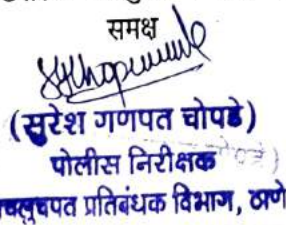 समक्ष
(सुरेश गणपत चोपडे)
पोलीस निरीक्षक
प्रतिबंधक विभाग, ठाणे